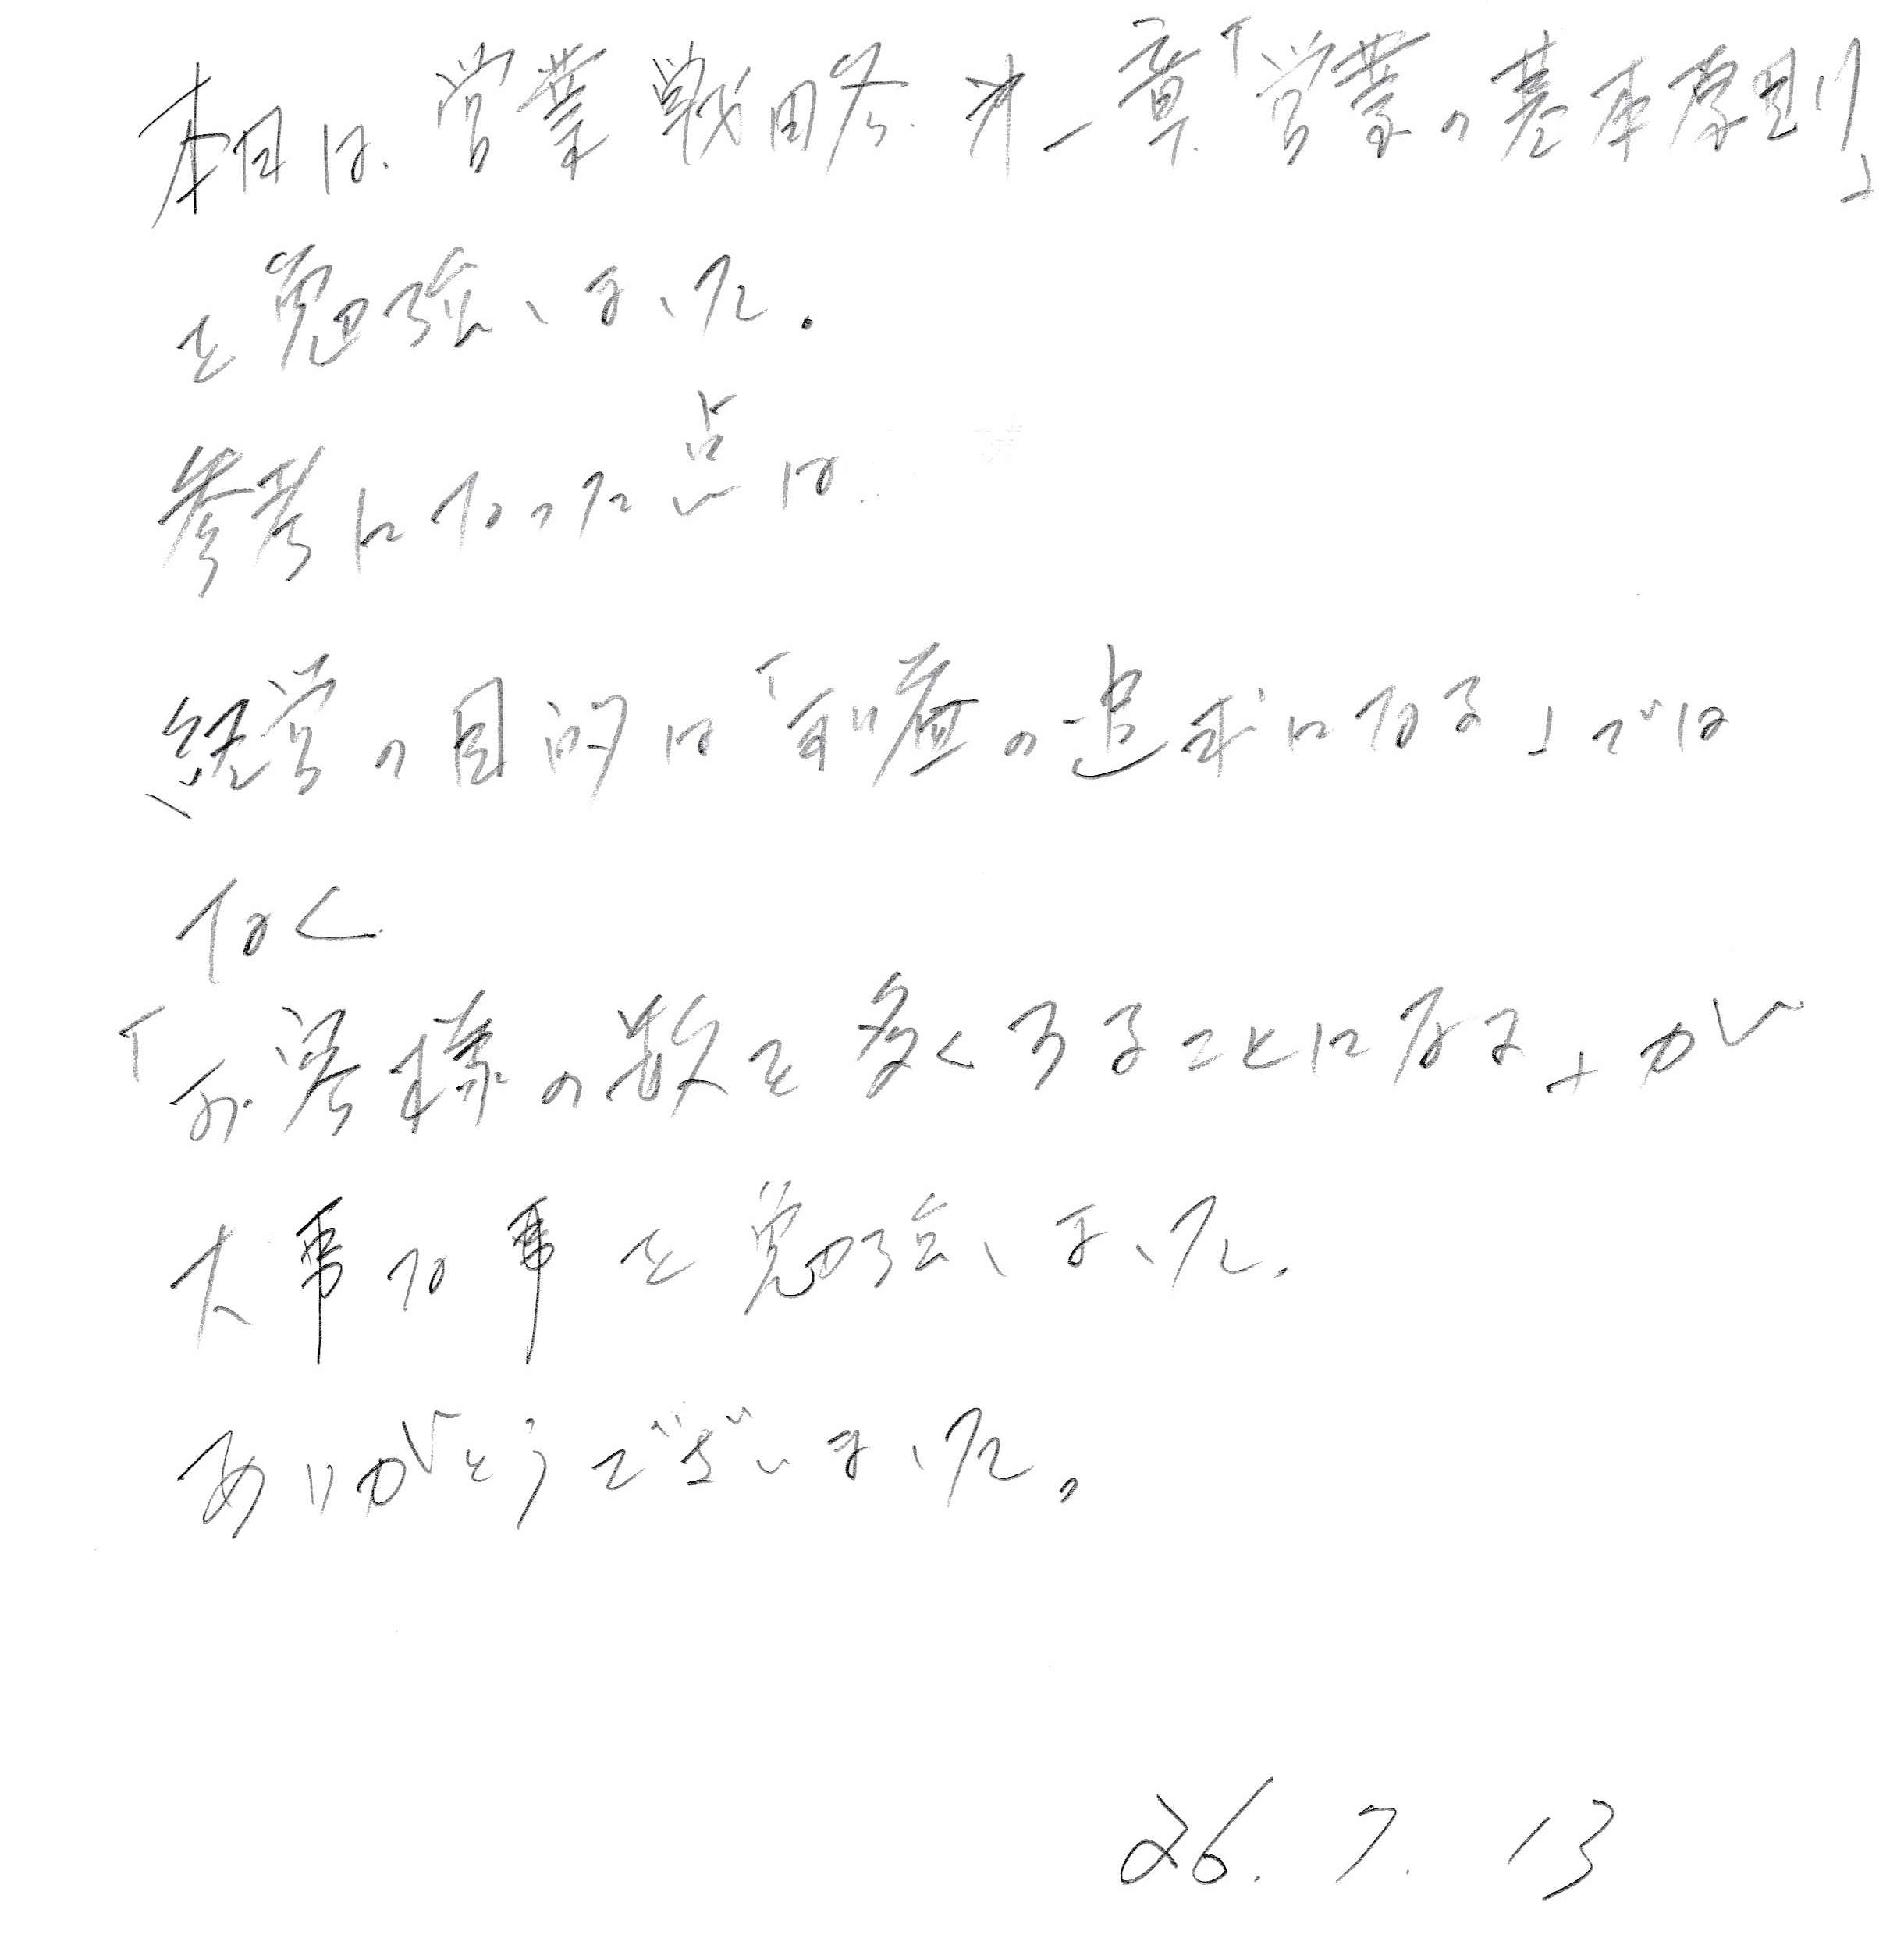 本日は、営業戦略 オ一章「営業の基本原則」
を勉強しました.
参考になった点は
経営の目的は「利益の追求になる」では
なく
「お客様の数を多くすることになる」が
大事な事を勉強しました.
ありがとうございました。
26. 7. 13